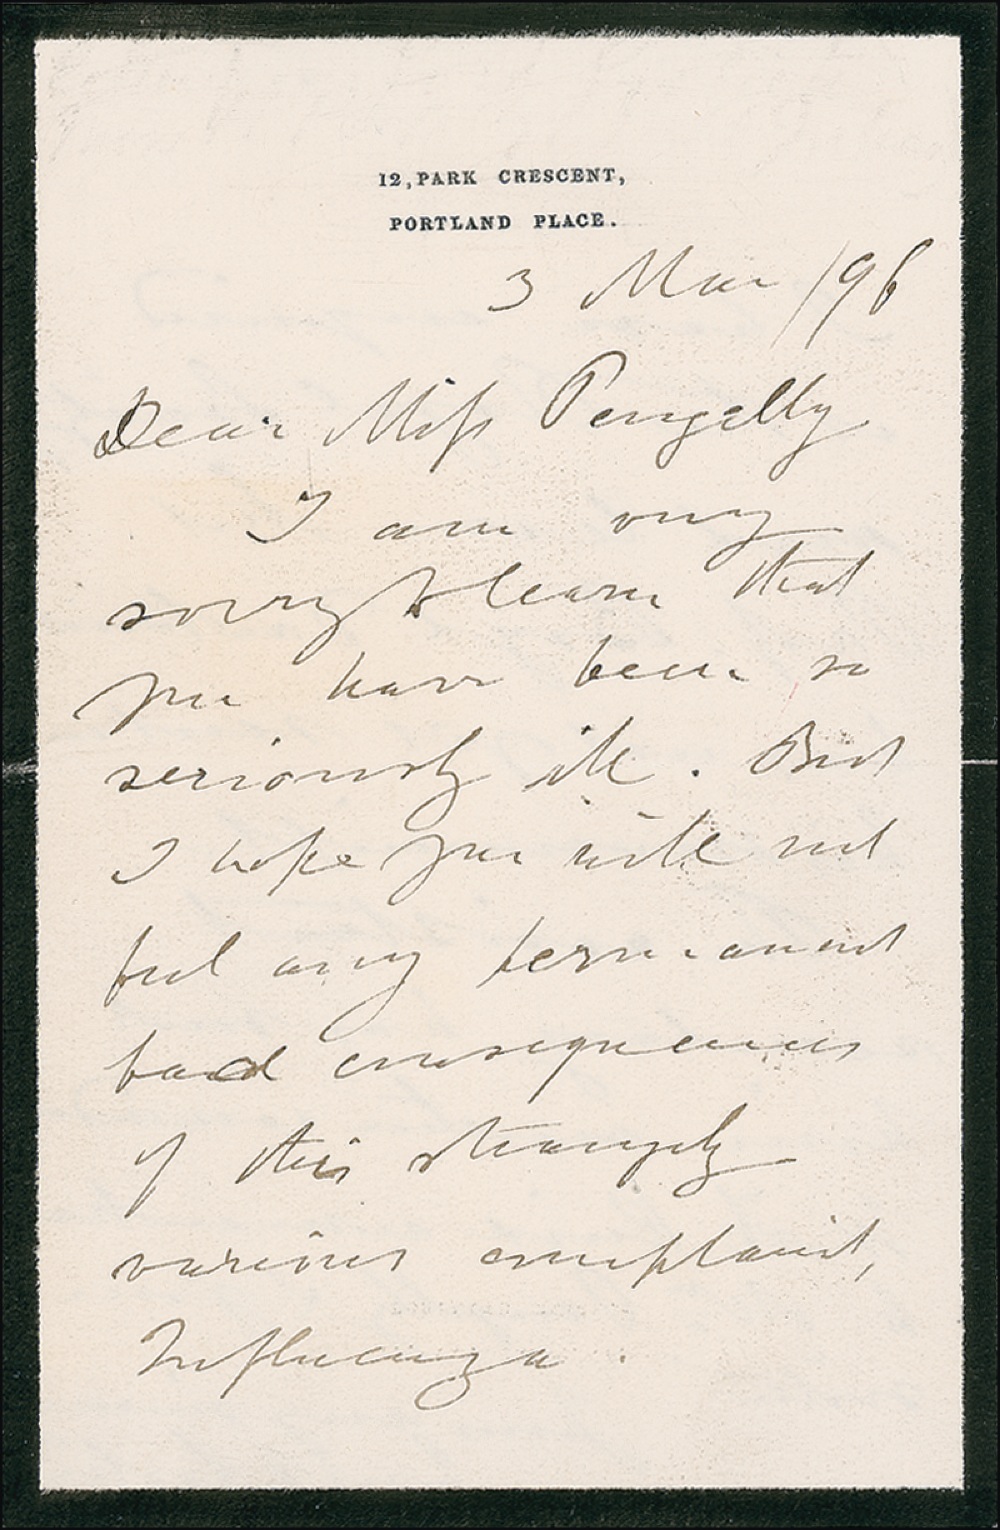 12, PARK CRESCENT,
PORTLAND PLACE.
3 Mar /96
Dear Miss Pengelly
I am very
sorry to learn that
you have been so
seriously ill. But
I hope you will not
feel any permanent
bad consequences
of this strangely
various complaint,
Influenza.